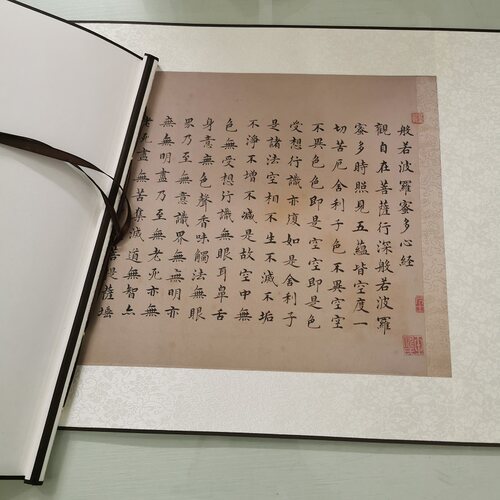 般若波羅蜜多心經
觀自在菩薩行深般若波羅
蜜多時照見五蘊皆空度一
切苦厄舍利子色不異空空
不異色色即是空空即是色
受想行識亦復如是舍利子
是諸法空相不生不滅不垢
不淨不增不減是故空中無
色無受想行識無眼耳鼻舌
身意無色聲香味觸法無眼
界乃至無意識界無無明亦
無無明盡乃至無老死亦無
老死盡無苦集滅道無智亦
菩提薩埵